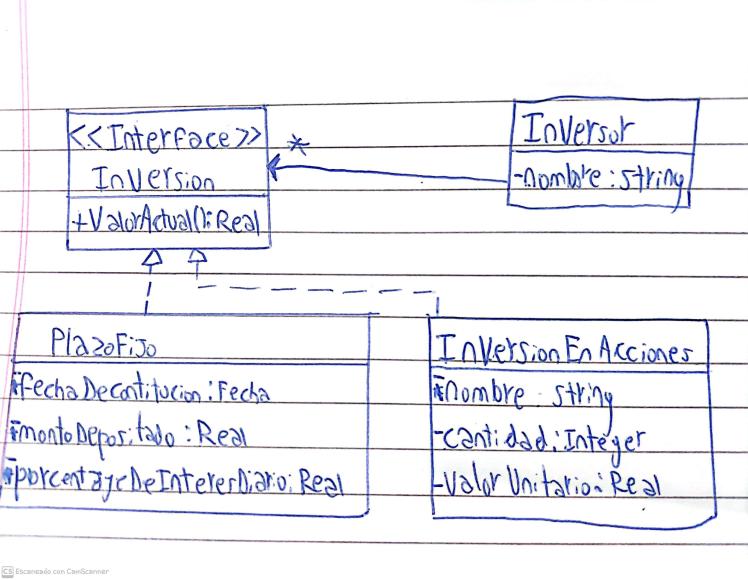 <<Interface>>
Inversion
+ValorActual():Real
*
Inversor
-nombre:String
PlazoFijo
-fechaDeContitucion:Fecha
-montoDepositado:Real
-porcentageDeInteresDiario:Real
InversionEnAcciones
-nombre:String
-cantidad:Integer
-valorUnitario:Real
CS Escaneado con CamScanner